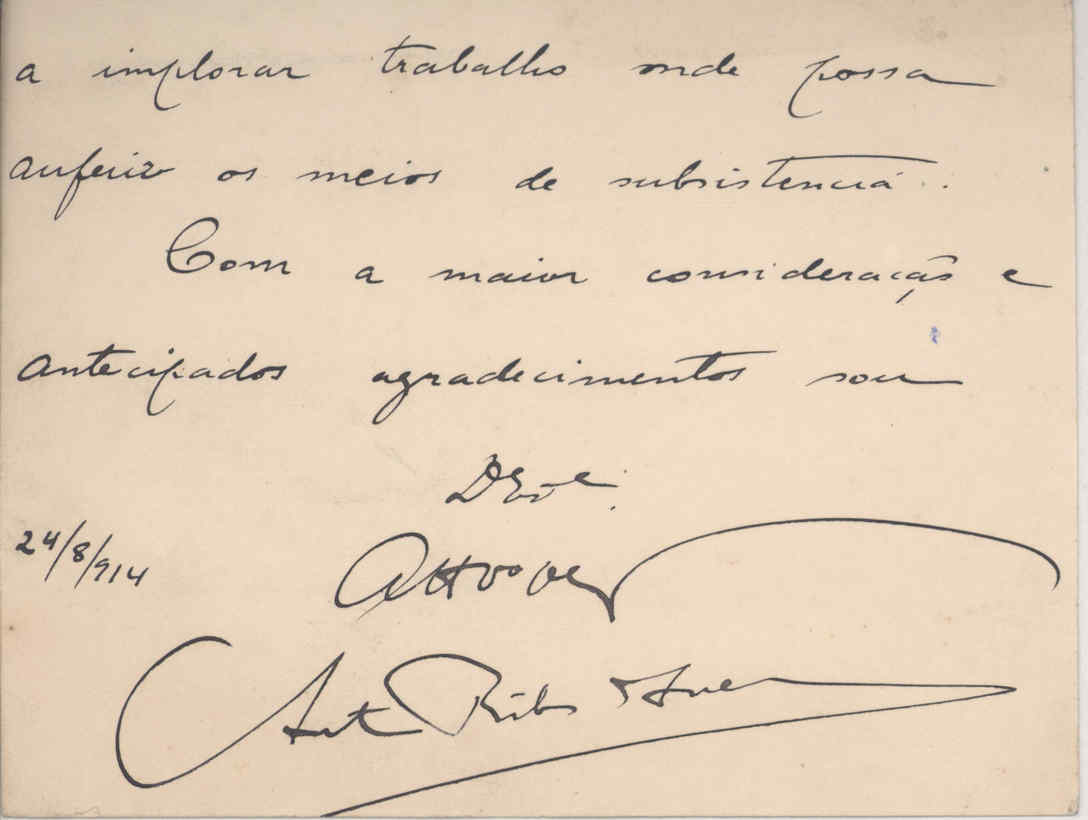 a implorar trabalho onde possa
auferir os meios de subsistencia.
Com a maior consideração e
antecipados agradecimentos sou
D V. Exª
24/8/914
Attº
Ant Ribº